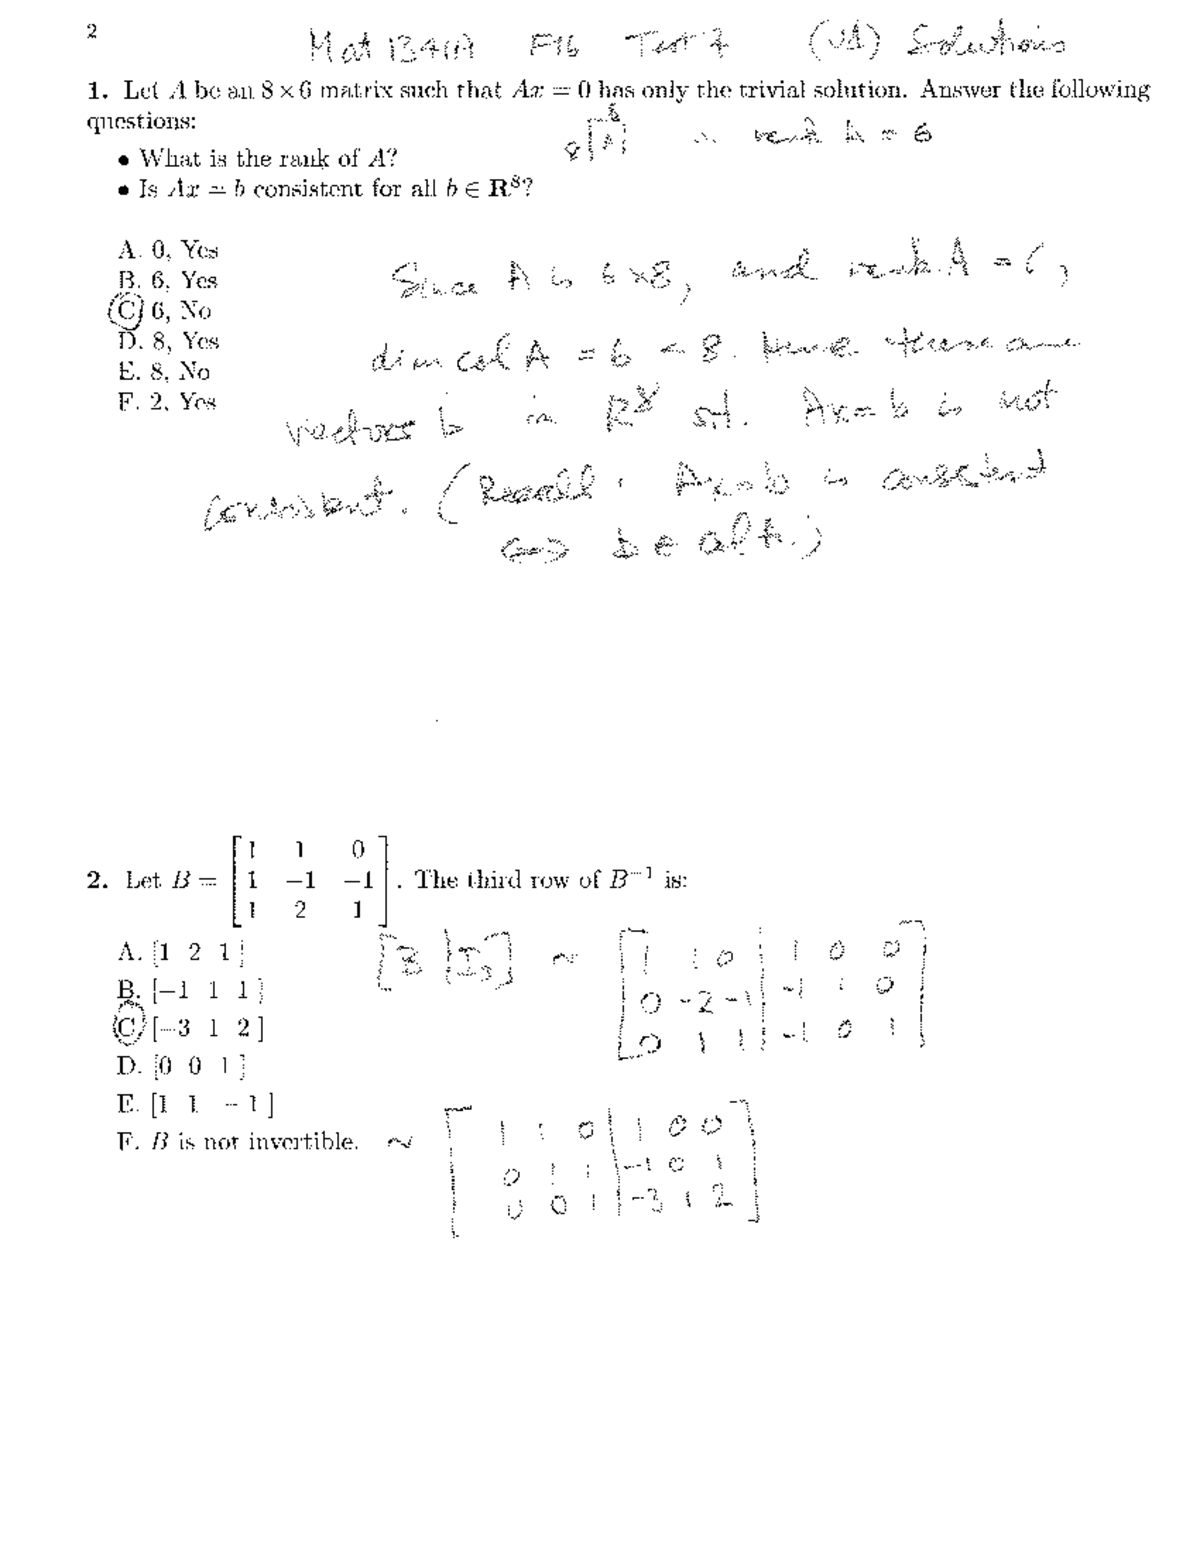 2
Mat 1341A F16 Test 2 (VA) Solutions
1. Let A be an 8 × 6 matrix such that Ax = 0 has only the trivial solution. Answer the following
questions:
6
8 [A] ∴ rank A = 6
• What is the rank of A?
• Is Ax = b consistent for all b ∈ R⁸?
A. 0, Yes
B. 6, Yes
C. 6, No
D. 8, Yes
E. 8, No
F. 2, Yes
Since A is 6×8, and rank A = 6,
dim col A = 6 < 8. Hence there are
vectors b in R⁸ s.t. Ax=b is not
consistent. (Recall: Ax=b is consistent
⟺ b ∈ col A.)
2. Let B = [1 1 0
1 −1 −1
1 2 1]. The third row of B⁻¹ is:
A. [1 2 1]
B. [−1 1 1]
C. [−3 1 2]
D. [0 0 1]
E. [1 1 −1]
F. B is not invertible.
[B | I₃] ~ [1 1 0 | 1 0 0
0 -2 -1 | -1 1 0
0 1 1 | -1 0 1]
~ [1 1 0 | 1 0 0
0 1 1 | -1 0 1
0 0 1 | -3 1 2]